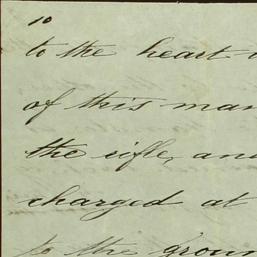 10
to the heart
of this man
the rifle, and
charged at
to the groun